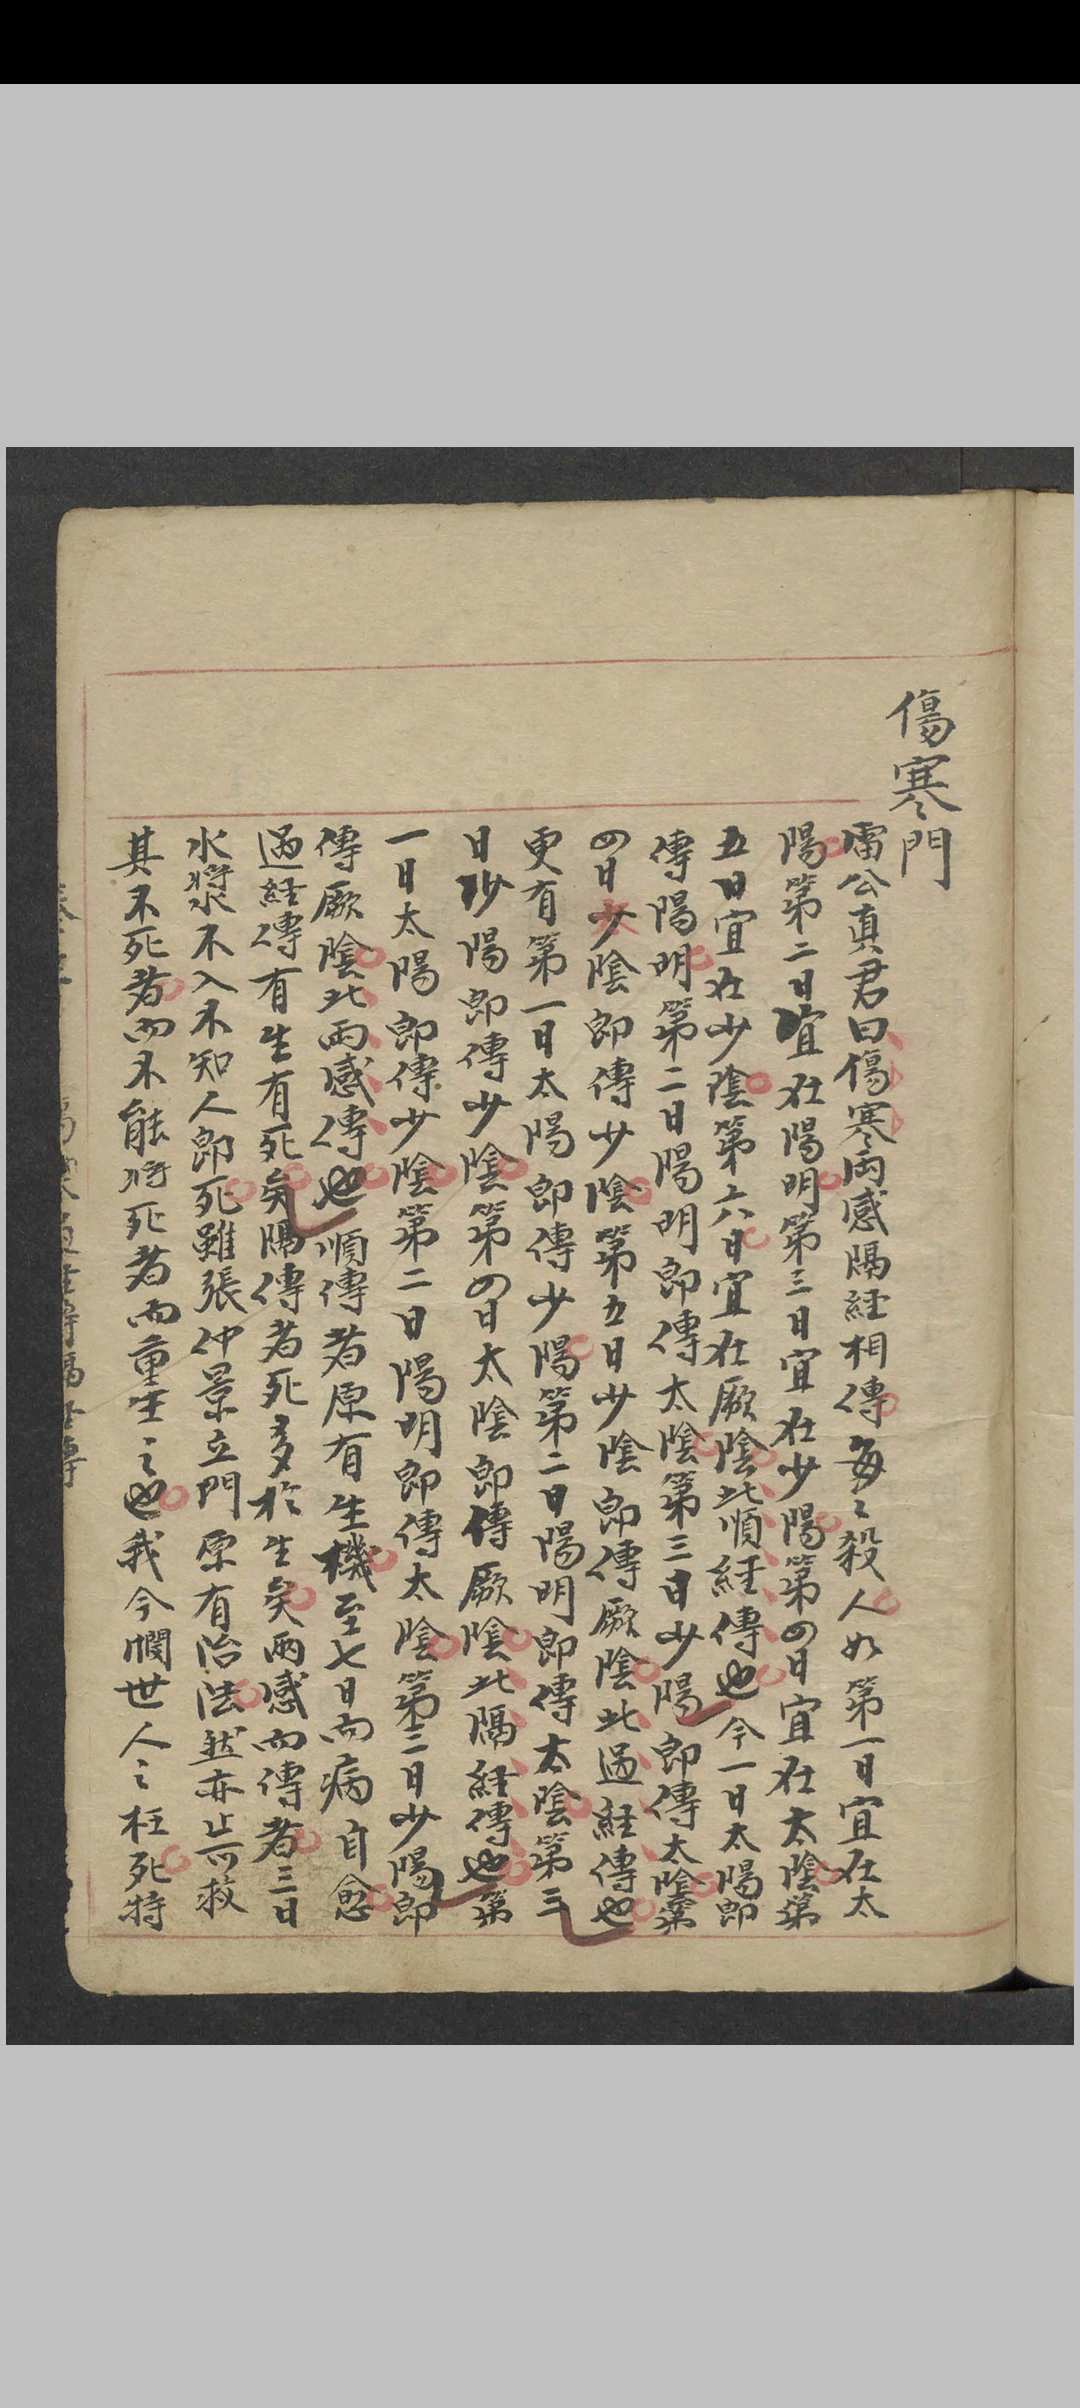 傷寒門
雷公真君曰傷寒両感隔経相傳每々殺人如第一日宜在太
陽第二日宜在陽明第三日宜在少陽第四日宜在太陰第
五日宜在少陰第六日宜在厥陰此順経傳也今一日太陽即
傳陽明第二日陽明即傳太陰第三日少陽即傳太陰第
四日少陰即傳少陰第五日少陰即傳厥陰此過経傳也
更有第一日太陽即傳少陽第二日陽明即傳太陰第三
日少陽即傳少陰第四日太陰即傳厥陰此隔経傳也第
一日太陽即傳少陰第二日陽明即傳太陰第三日少陽即
傳厥陰此兩感傳也順傳者原有生機至七日而病自愈
過経傳有生有死矣隔傳者死多於生矣兩感而傳者三日
水漿不入不知人即死雖張仲景立門原有治法然亦止可救
其不死者而不能将死者而重生之也我今憫世人之枉死特